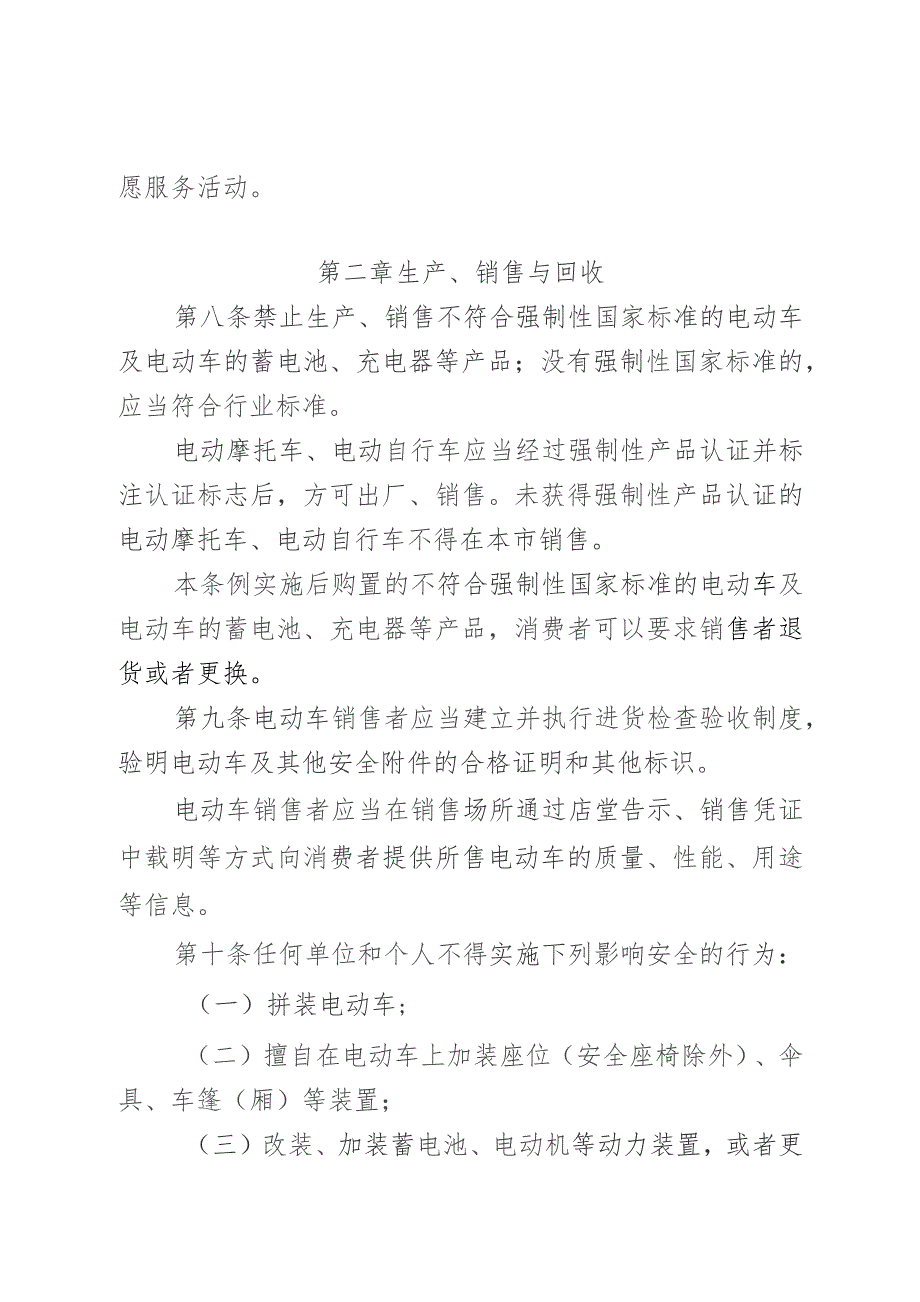 愿服务活动。
第二章生产、销售与回收
第八条禁止生产、销售不符合强制性国家标准的电动车
及电动车的蓄电池、充电器等产品；没有强制性国家标准的，
应当符合行业标准。
电动摩托车、电动自行车应当经过强制性产品认证并标
注认证标志后，方可出厂、销售。未获得强制性产品认证的
电动摩托车、电动自行车不得在本市销售。
本条例实施后购置的不符合强制性国家标准的电动车及
电动车的蓄电池、充电器等产品，消费者可以要求销售者退
货或者更换。
第九条电动车销售者应当建立并执行进货检查验收制度，
验明电动车及其他安全附件的合格证明和其他标识。
电动车销售者应当在销售场所通过店堂告示、销售凭证
中载明等方式向消费者提供所售电动车的质量、性能、用途
等信息。
第十条任何单位和个人不得实施下列影响安全的行为：
（一）拼装电动车;
（二）擅自在电动车上加装座位（安全座椅除外）、伞
具、车篷（厢）等装置;
（三）改装、加装蓄电池、电动机等动力装置，或者更